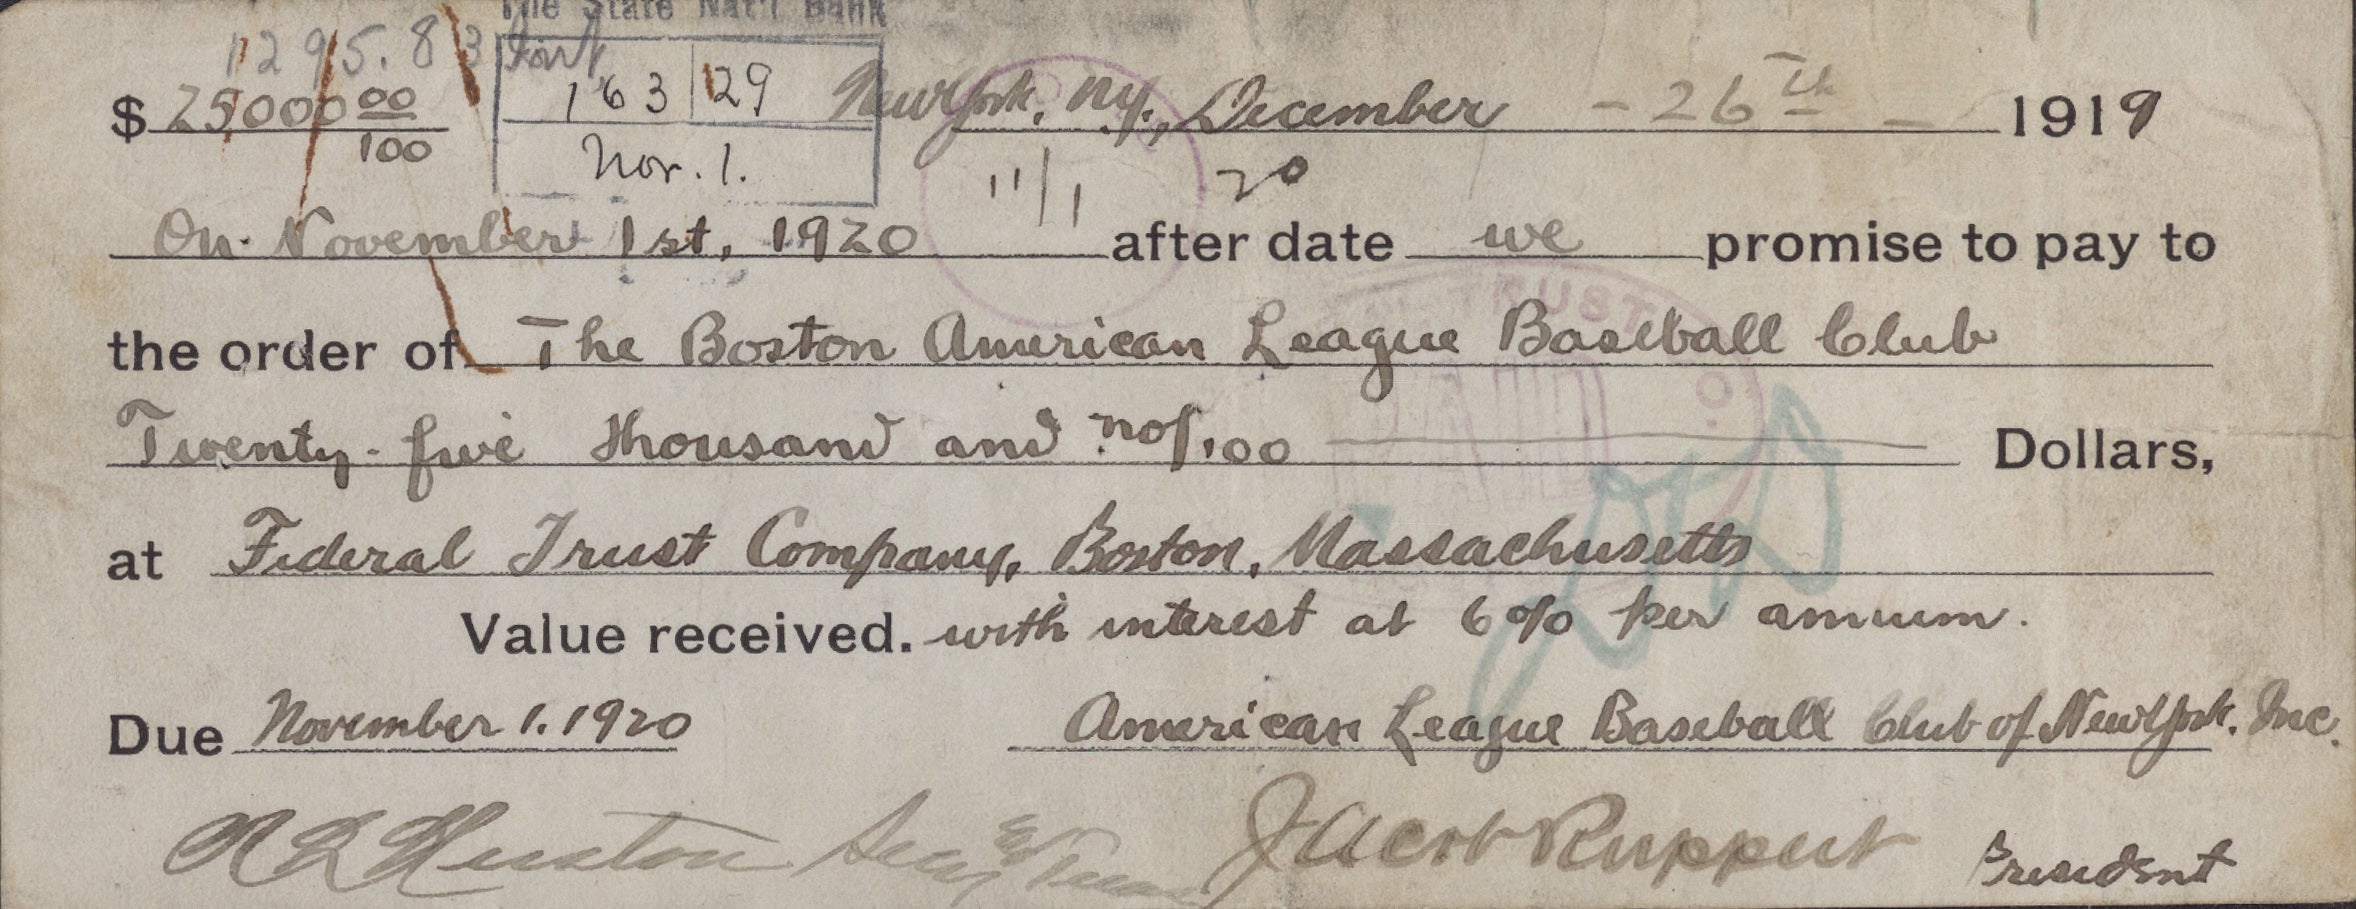 The State Nat'l Bank
1295.83 Int
$ 25000 00/100
163 | 29
Nov. 1.
New York, N.Y., December - 26th - 1919
11/1 20
On November 1st, 1920 after date we promise to pay to
the order of The Boston American League Baseball Club
Twenty-five thousand and no/100 Dollars,
at Federal Trust Company, Boston, Massachusetts
Value received. with interest at 6% per annum.
Due November 1. 1920 American League Baseball Club of New York. Inc.
T L Huston Secy & Treas Jacob Ruppert President